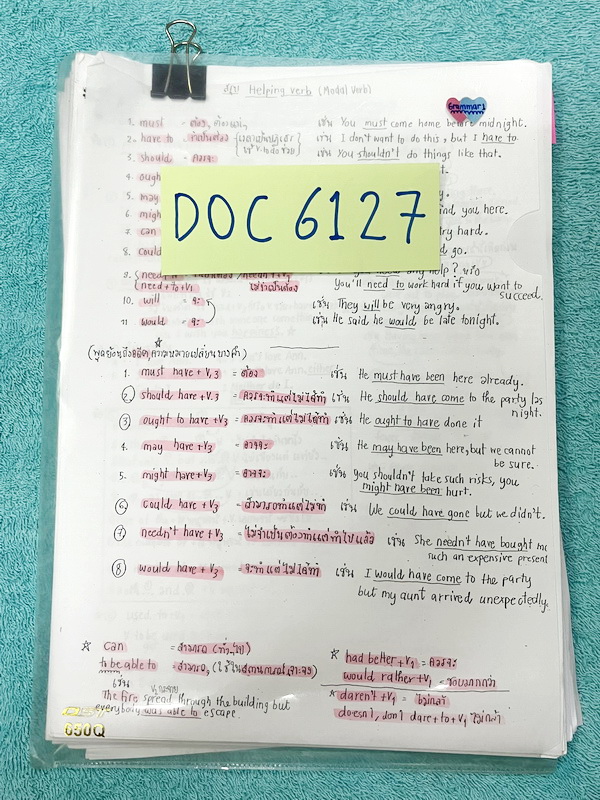 Helping verb (Modal Verb)
Grammar 1
1. must = ต้อง, เช่น You must come home before midnight.
2. have to จำเป็นต้อง เช่น I don't want to do this, but I have to.
3. should = ควรจะ เช่น You shouldn't do things like that.
4. ough
5. may
6. migh ind you here.
7. can try hard.
8. could go.
DOC 6127
9. need help? หรือ
need + to + V1 ไม่จำเป็นต้อง You'll need to work hard if you want to succeed.
10. will = จะ เช่น They will be very angry.
11 would = จะ เช่น He said he would be late tonight.
1. must have + V3 = ต้อง เช่น He must have been here already.
2 should have + V3 = ควรจะทำแต่ไม่ได้ทำ เช่น He should have come to the party las
night.
3 ought to have + V3 = ควรจะทำแต่ไม่ได้ทำ เช่น He ought to have done it
4. may have + V3 = อาจจะ เช่น He may have been here, but we cannot
be sure.
5. might have + V3 = อาจจะ เช่น you shouldn't take such risks, you
might have been hurt.
6 could have + V3 = สามารถทำแต่ไม่ทำ เช่น We could have gone but we didn't.
7 needn't have + V3 = ไม่จำเป็นต้องทำแต่ทำไปแล้ว เช่น She needn't have bought me
such an expensive present
8 would have + V3 = จะทำแต่ไม่ได้ทำ เช่น I would have come to the party
but my aunt arrived unexpectedly.
☆ can = สามารถ (ทั่วไป)
to be able to = สามารถ, (ใช้ในสถานการณ์เจาะจง)
เช่น
The fire spread through the building but
everybody was able to escape.
☆ had better + V1 = ควรจะ
would rather + V1 = ชอบมากกว่า
☆ daren't + V1 = ไม่กล้า
doesn't, don't dare + to + V1 ไม่กล้า
050Q